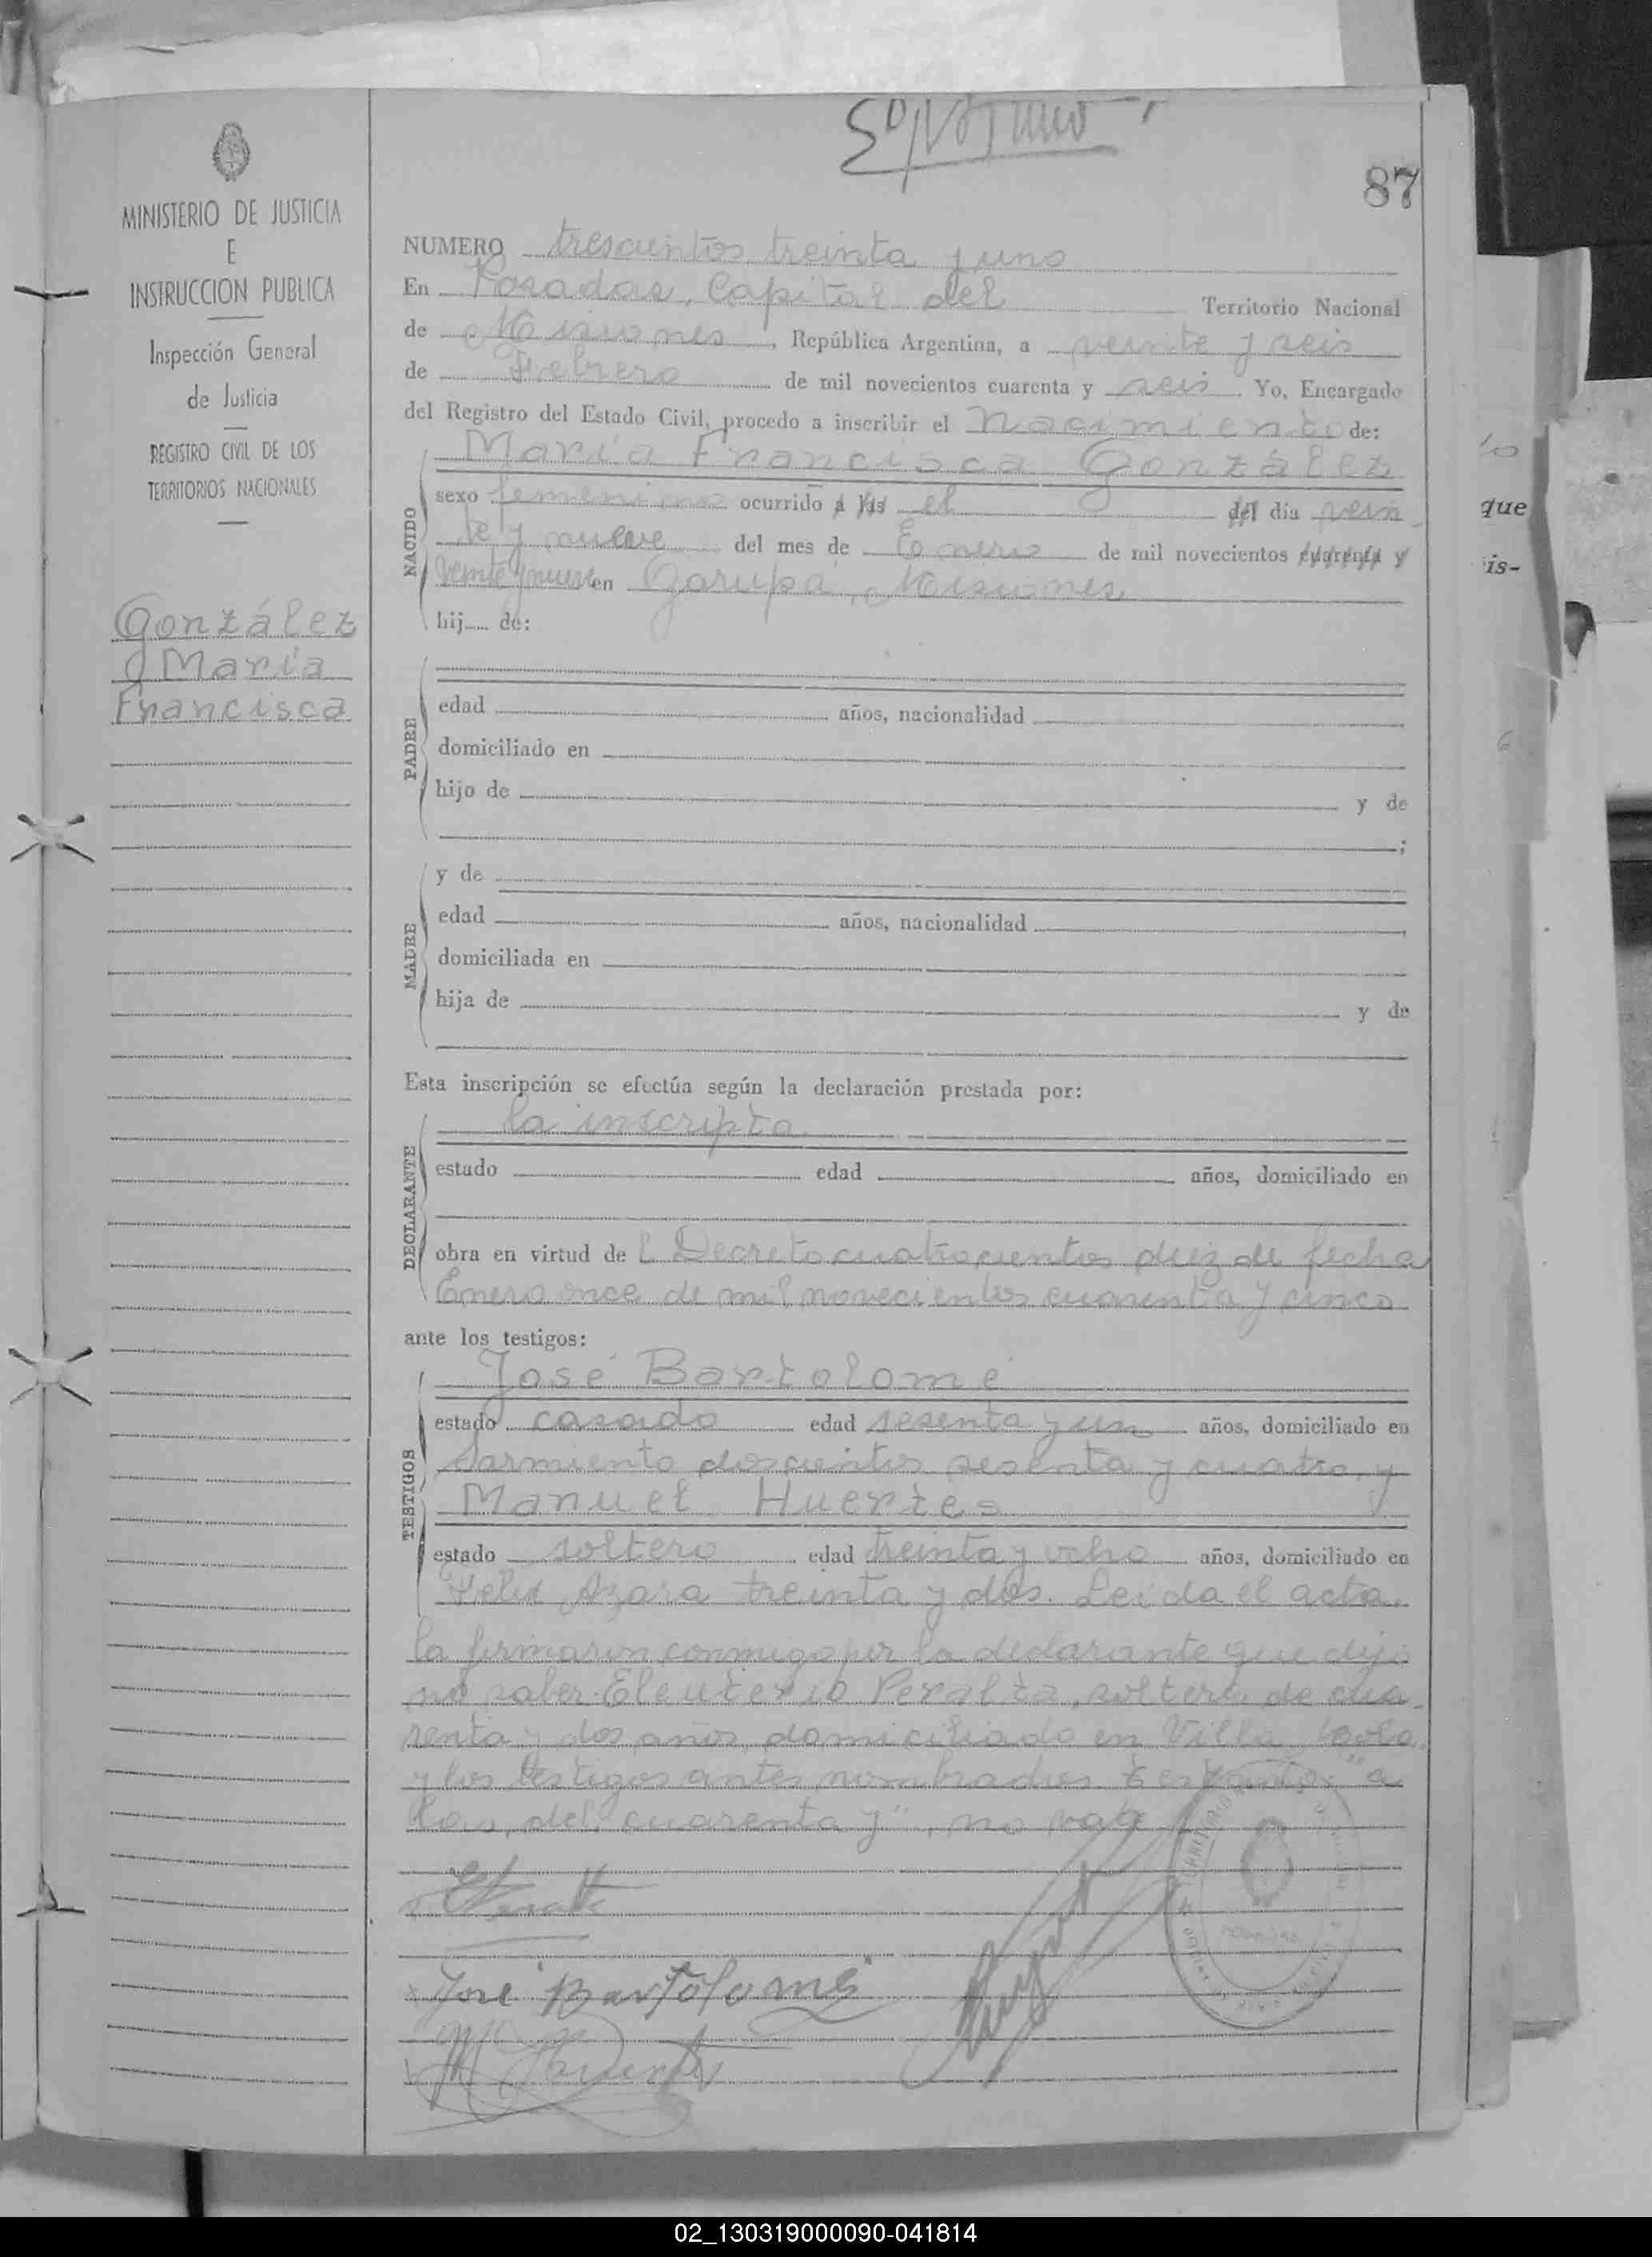 87
MINISTERIO DE JUSTICIA
E
INSTRUCCION PUBLICA
Inspección General
de Justicia
REGISTRO CIVIL DE LOS
TERRITORIOS NACIONALES
González
María
Francisca
NUMERO trescientos treinta y uno
En Posadas, Capital del Territorio Nacional
de Misiones, República Argentina, a veinte y seis
de Febrero de mil novecientos cuarenta y seis. Yo, Encargado
del Registro del Estado Civil, procedo a inscribir el Nacimiento de:
María Francisca González
NACIDO
sexo femenino ocurrido a las el del día vein
te y nueve del mes de Enero de mil novecientos cuarenta y
veinte y nueve en Garupá, Misiones
hij de:
PADRE
edad años, nacionalidad
domiciliado en
hijo de y de
;
MADRE
y de
edad años, nacionalidad
domiciliada en
hija de y de
Esta inscripción se efectúa según la declaración prestada por:
DECLARANTE
la inscripta
estado edad años, domiciliado en
obra en virtud de l Decreto cuatrocientos diez de fecha
Enero once de mil novecientos cuarenta y cinco
ante los testigos:
TESTIGOS
José Bartolomé
estado casado edad sesenta y un años, domiciliado en
Sarmiento doscientos sesenta y cuatro, y
Manuel Huertes
estado soltero edad treinta y ocho años, domiciliado en
Felix Azara treinta y dos. Leída el acta,
la firmaron conmigo por la declarante que dijo
no saber Eleuterio Peralta, soltero, de cua-
renta y dos años, domiciliado en Villa
y los testigos antes nombrados. Testado: "a
las, del, cuarenta y", no vale
José Bartolomé
que
is-
02_130319000090-041814